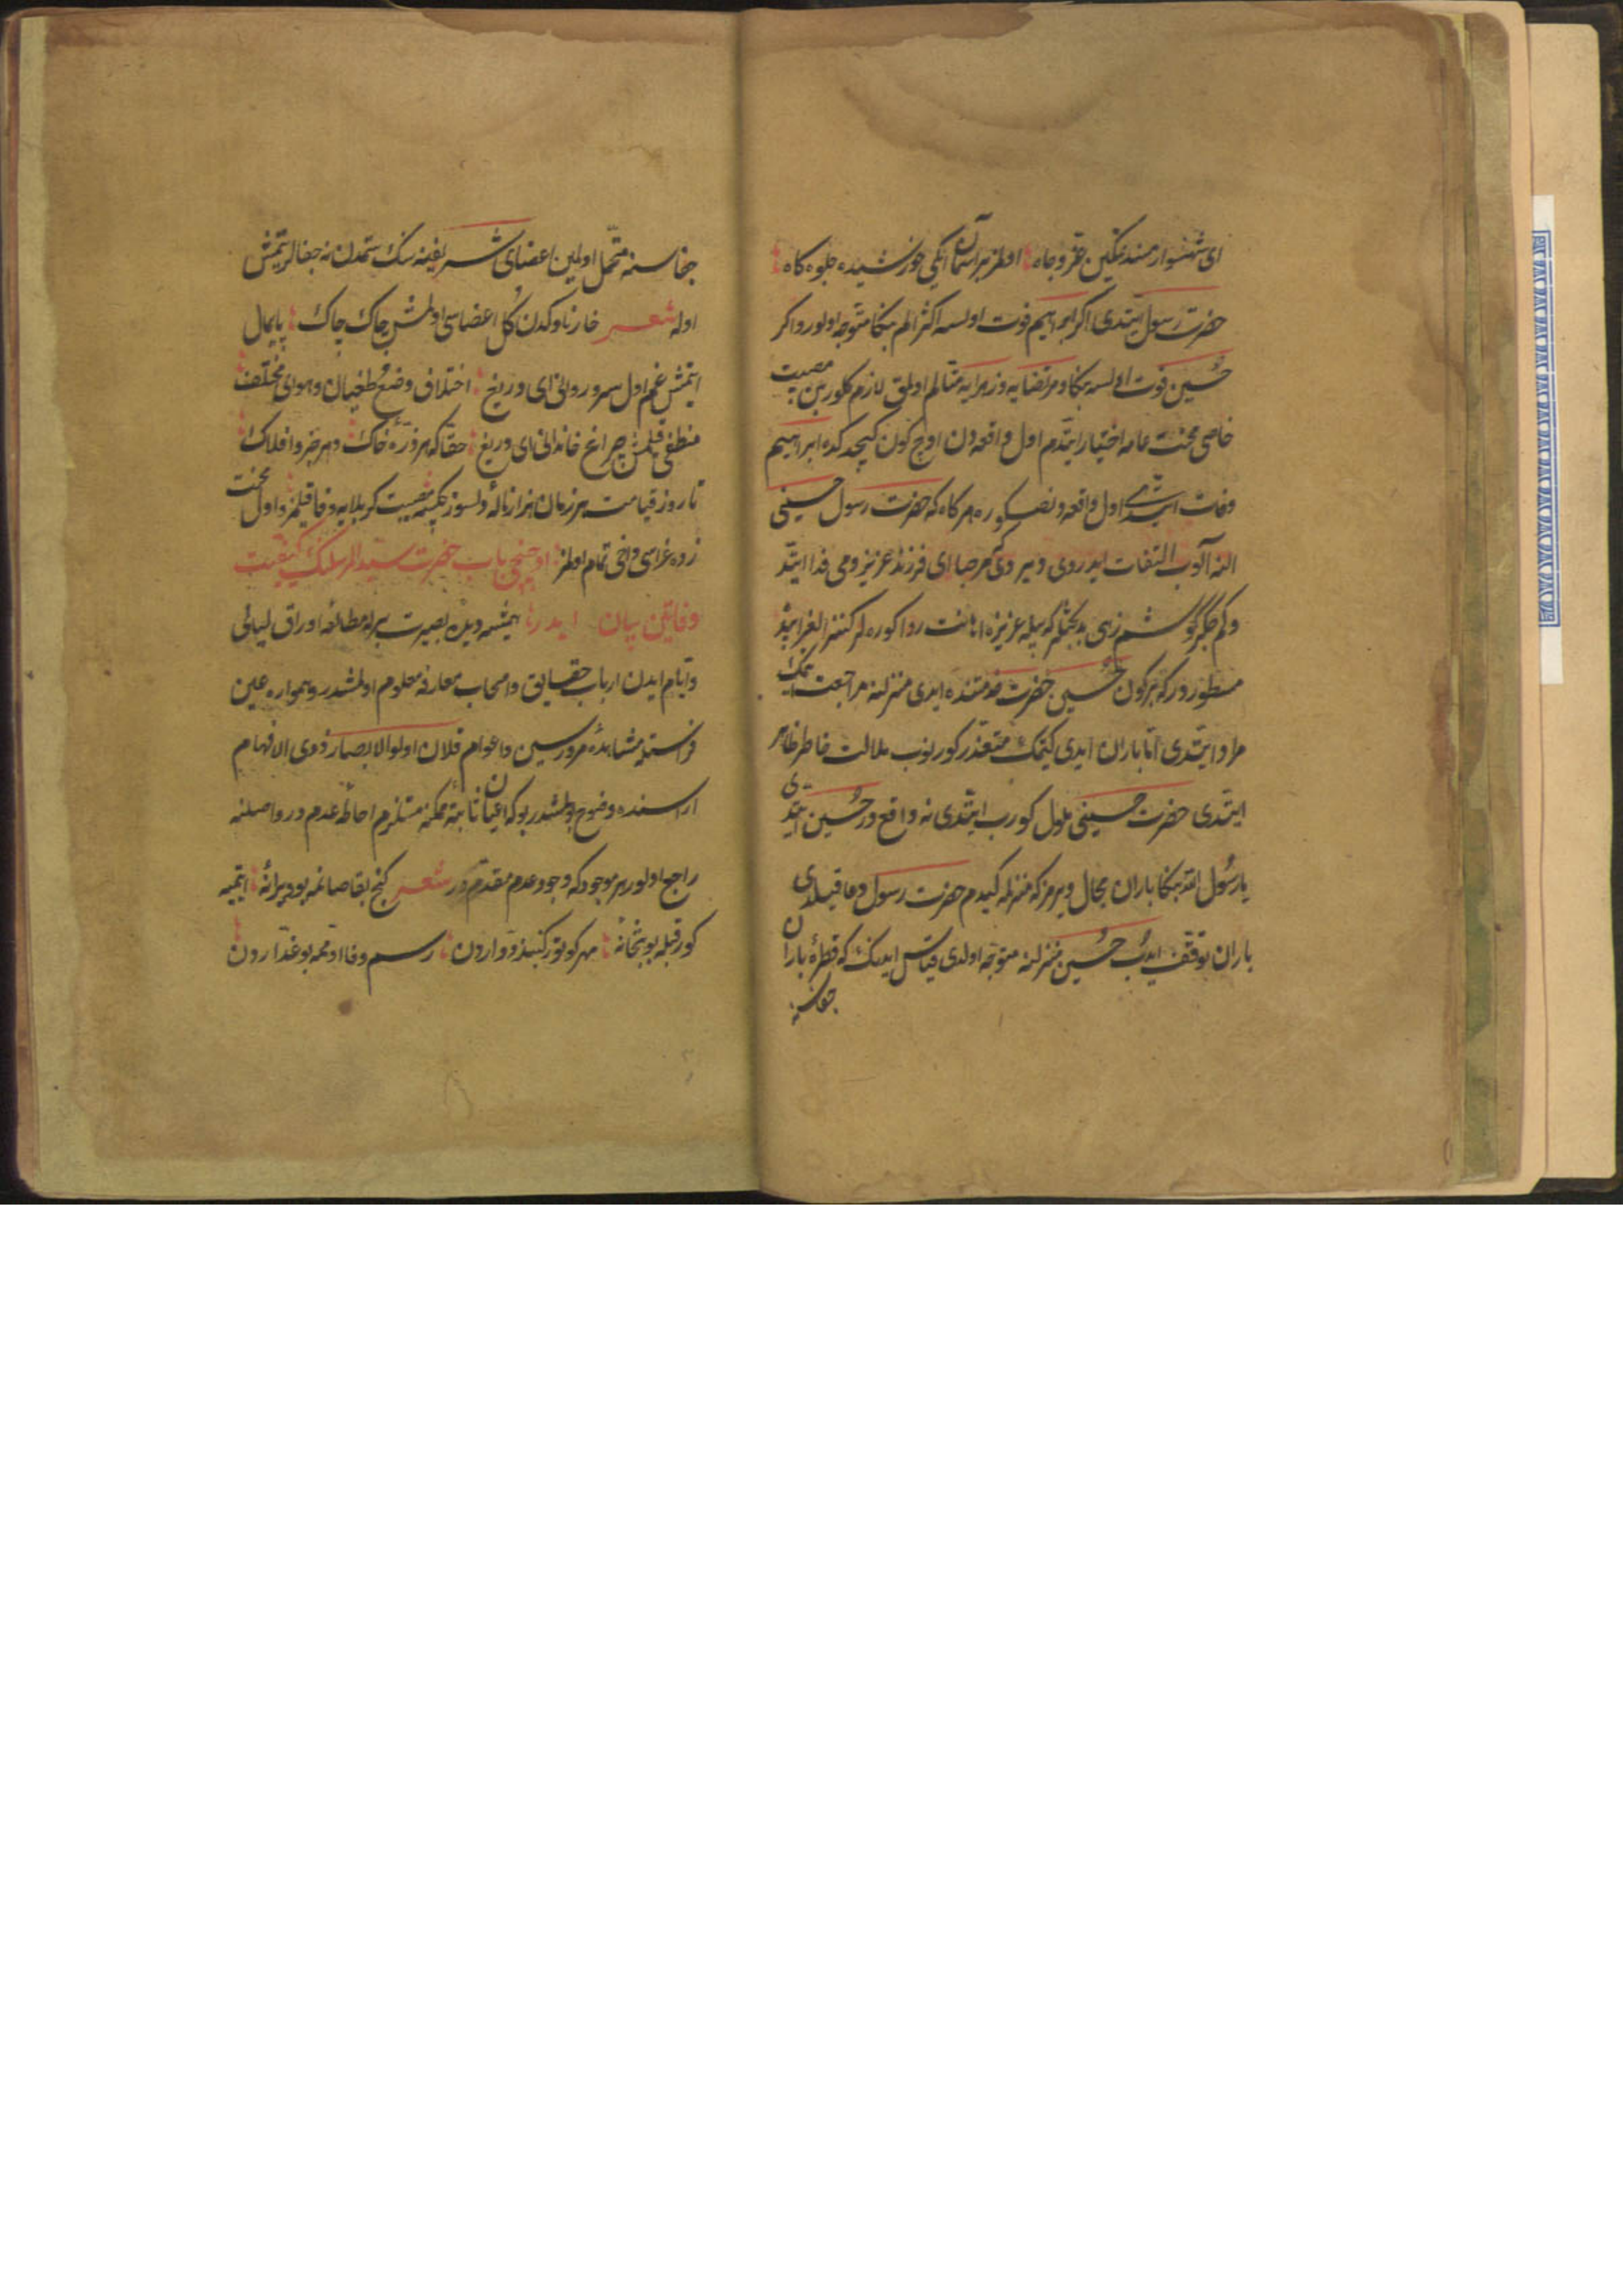 ای شهسوار مسند تمکین عز و جاه اولمز بر آسمان ایکی خورشیده جلوه کاه
حضرت رسول ایتدی اکر ابراهیم فوت اولسه اکثر الم بنکا متوجه اولور و اکر
حسین فوت اولسه بنکا و مرتضایه و زهرایه متالم اولمق لازم کلور بن مصیبت
خاصی محنت عامه اختیار ایتدم اول واقعه دن اوچ کون کیجدکده ابراهیم
وفات ایتدی اول واقعه دنصکوره هر کاه که حضرت رسول حسینی
النه آلوب التفات ایدردی و یردی که مرحبا ای فرزند عزیز روحی فدا ایتد
وکم جکر گوشم زهی بدبختلر که بیله عزیزه اهانت روا کوره لر کنز الغرایبد
مسطوردر که بر کون حسین حضرت خدمتنده ایدی منزلنه مراجعت ایتمک
مراد ایتدی اتا باران ایدی کیتمک متعذر کورینوب ملالت خاطر ظاهر
ایتدی حضرت حسینی ملول کورب ایتدی نه واقع در حسین ایتدی
یا رسول الله بنکا باران مجال ویرمز که منزلمه کیدم حضرت رسول دعا قیلدی
باران توقف ایدب حسین منزلنه متوجه اولدی قیاس ایدنک که قطرهٔ باران
جفاسنه
جفاسنه متحمل اولمین اعضای شریفینه سنک ستمدن نه جفالر یتمش
اوله شعر خار ناوکدن کل اعضاسی اولمش چاک چاک پایمال
ایتمش غم اول سرو روانی ای دریغ اختلاف وضع طغیان و هوای مختلف
منطفی قلمش چراغ خاندانی ای دریغ حقا که هر ذرهٔ خاک دهر خضرو افلاک
تا روز قیامت هر زمان هزار نالهٔ دلسوز چکسه مصیبت کربلایه وفا قیلمز و اول محنت
زده عزاسی دخی تمام اولمز اوچنجی باب حضرت سید المرسلنک کیفیت
وفاتین بیان ایدر همیشه دیدهٔ بصیرت برله مطالعه اوراق لیالی
و ایام ایدن ارباب حقایق و اصحاب معارفه معلوم اولمشدر و همواره عین
فراستله مشاهدهٔ مرور سنین و اعوام قلان اولوالابصار ذوی الافهام
اراسنده وضوح بولمشدر بو که اعیان ثابتهٔ ممکنه مستلزم احاطهٔ عدم در و اصلنه
راجع اولور هر موجود که وجود عدم مقدم در شعر کنج بقا صانمه بو ویرانهٔ ایتمیه
کور قبله بو بتخانهٔ مهر کوتور کنبد دواردن رسم وفا اومه بو غداردن